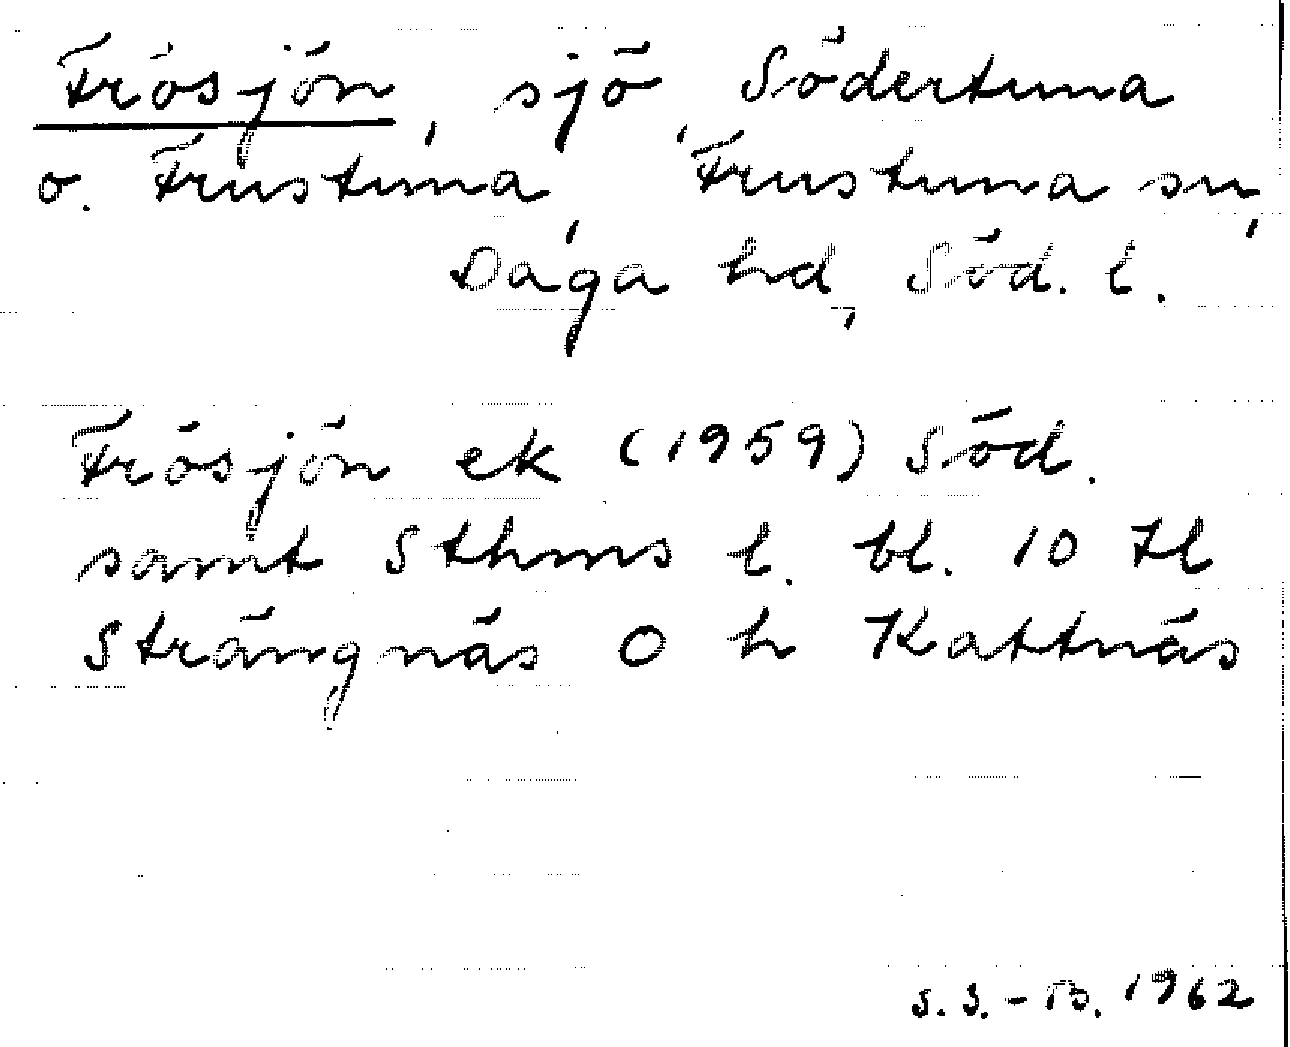 Frösjön, sjö, Södertuna
o. Frustuna, Frustuna sn,
Daga hd, Söd. l.
Frösjön ek (1959) Söd.
samt Sthms l. bl. 10 H
Strängnäs O h Kattnäs
S.S.-B. 1962